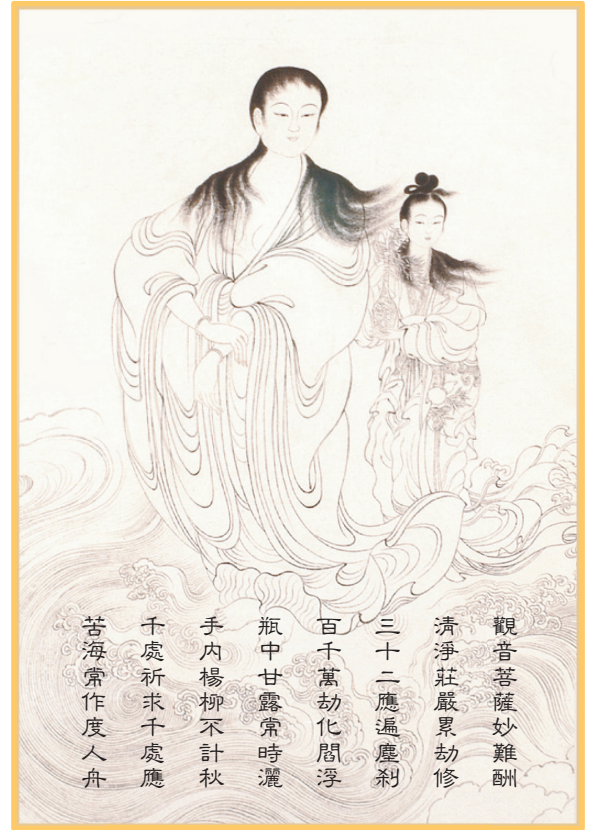 觀音菩薩妙難酬
清淨莊嚴累劫修
三十二應遍塵剎
百千萬劫化閻浮
瓶中甘露常時灑
手內楊柳不計秋
千處祈求千處應
苦海常作度人舟